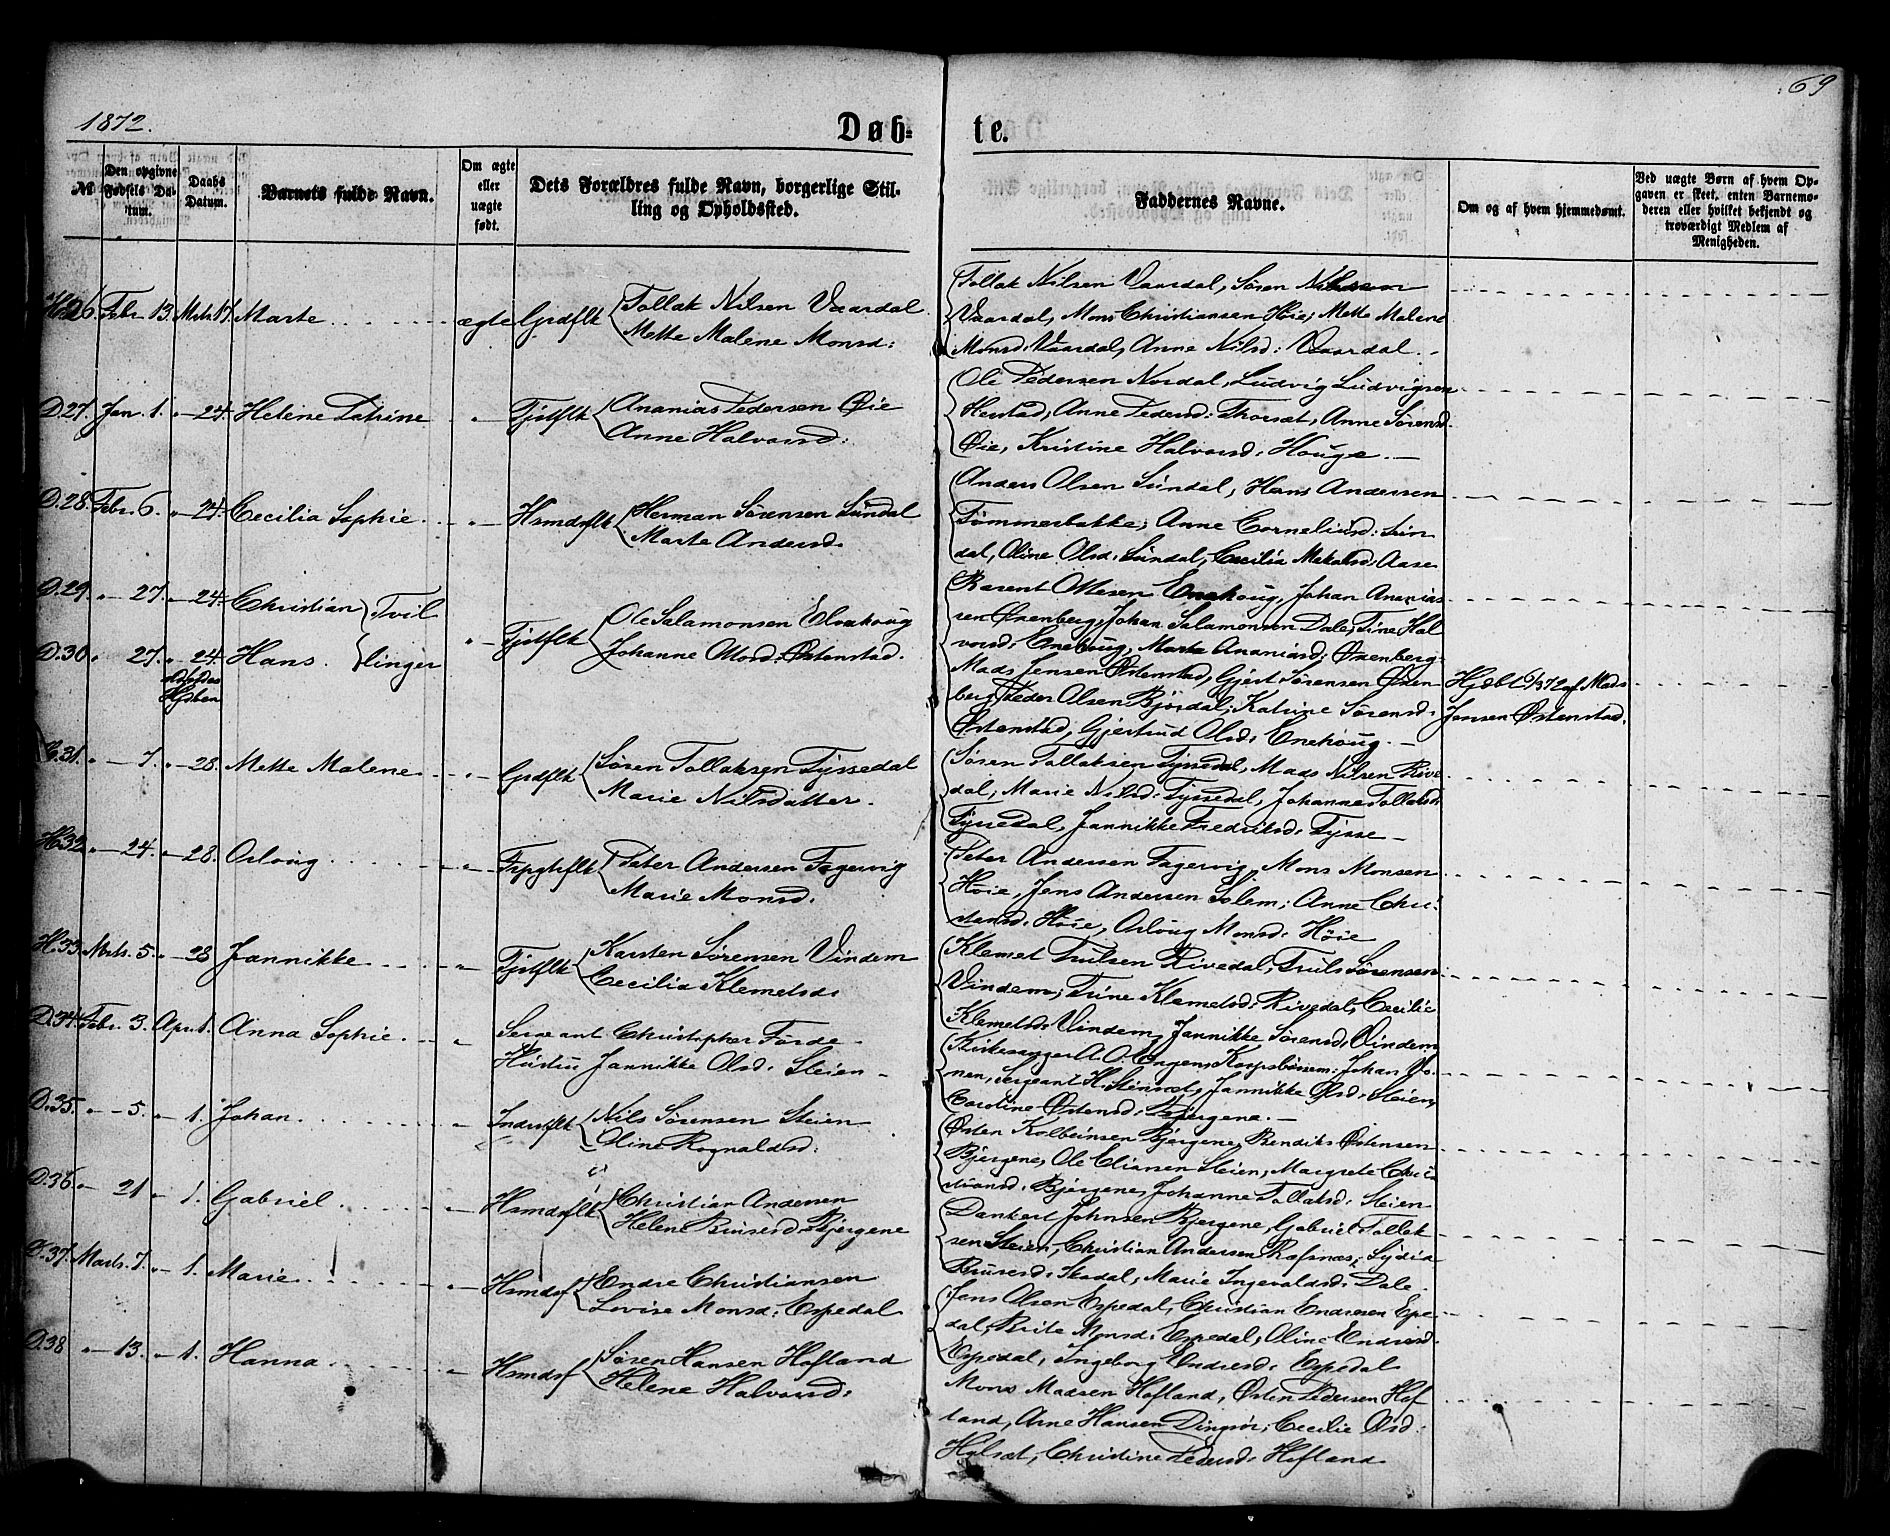 69
1872.
Døb-
te.
№
Den opgivne Fødsels Datum.
Daabs Datum.
Barnets fulde Navn.
Om ægte eller uægte født.
Dets Forældres fulde Navn, borgerlige Stilling og Opholdssted.
Faddernes Navne.
Om og af hvem hjemmedøbt.
Ved uægte Børn af hvem Opgaven er skeet, enten Barnemoderen eller hvilket bekjendt og troværdigt Medlem af Menigheden.
H.26. Febr. 13. Marts 17. Marte ægte Grdflk Tollak Nilsen Vaardal
Mette Malene Monsd:
Tollak Nilsen Vaardal, Søren Nilssen
Vaardal, Mons Christiansen Høie, Mette Malene
Monsd: Vaardal, Anne Nilsd: Vaardal.
D.27. Jan. 1. " 24. Helene Katrine " Fjstflk Ananias Pedersen Øie
Anne Halvorsd:
Ole Pedersen Nordal, Ludvig Ludvigsen
Herstad, Anne Pedersd: Thorset, Anne Sørensd.
Øie, Kristine Halvorsd: Houge.
D.28. Febr. 6. " 24. Cecilia Sophie " Hsmdsflk Herman Sørensen Sundal
Marte Andersd.
Anders Olsen Sundal, Hans Andersen
Tømmerbakke, Anne Corneliusd: Sun
dal, Oline Olsd: Sundal, Cecilia Aase
D.29. " 27. " 24. Christian Tvil
D.30. " 27. " 24. Hans. linger
" Fjstflk Ole Salamonsen Elvehoug
Johanne Olsd: Østenstad.
Barent Ottesen Enehoug, Johan Ananias
sen Øxenberg, Johan Salamonsen Dale, Tine Hal
vorsd: Enehoug, Marta Ananiasd: Øxenberg
Mads Jensen Østenstad, Gjert Sørensen Øxen
berg, Peder Olsen Bjordal, Katrine Sørensd:
Østenstad, Gjertrud Olsd: Enehoug.
Mads
Jensen Østenstad.
31. " 7. " 28. Mette Malene " Grdflk Søren Tollaksen Tyssedal
Marie Nilsdatter.
Søren Tollaksen Tyssedal, Mads Nilsen Rive
dal, Marie Nilsd: Tyssedal, Johanne Tollaksd:
Tyssedal, Jannikke Fredriksd: Tysse
H.32. " 24. " 28. Osloug " Peter Andersen Fagervig
Marie Monsd.
Peter Andersen Fagervig, Mons Monsen
Høie, Jens Andersen Solem, Anne Chri
stensd: Høie, Osloug Monsd: Høie
H.33. Marts 5. " 28 Jannikke " Fjstflk Karsten Sørensen Vindem
Cecilia Klemetsd:
Klemet Trulsen Rivedal, Truls Sørensen
Vindem, Trine Klemetsd: Rivedal, Cecilie
Klemetsd: Vindem, Jannikke Sørensd: Vindem
D.34. Febr. 3. Apr. 1. Anna Sophie " Sergeant Christopher Førde
Hustru Jannikke Olsd: Steien
Kirkesanger A. O. Engen, Johan
nen, Sergeant H. Jannikke Olsd: Steien,
Caroline Østensd: Bjergene.
D.35. " 5. " 1. Johan " Inderstflk Nils Sørensen Steien
Oline Rognaldsd:
Østen Kolbeinsen Bjergene, Bendiks Østensen
Bjergene, Ole Eliassen Steien, Margrete Chri
stiansd: Bjergene, Johanne Tollaksd: Steien
D.36. " 21 " 1. Gabriel " Hsmdsflk Christian Andersen
Helene Brusesd: Bjergene
Dankert Johnsen Bjergene, Gabriel Tollak
sen Steien, Christian Andersen Rafsnæs, Sydia
Brusesd: Skadal, Marie Ingevaldsd: Dale.
D.37. Marts 7. " 1. Marie " Hsmdsf Endre Christiansen
Lovise Monsd: Espedal
Jens Olsen Espedal, Christian Endresen Espe
dal, Brite Monsd: Espedal, Oline Endresd.
Espedal, Ingeborg Endresd: Espedal
D.38 " 13. " 1. Hanna " Hsmdsf Søren Hansen Hofland
Helene Halvorsd:
Mons Madsen Hofland, Østen Pedersen Hof
land, Arne Hansen Dingsør, Cecilie Olsd:
Hulsæt, Christine Pedersd: Hofland